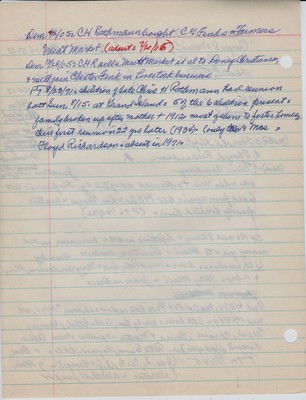 Dem 4/05: C H Rothmann bought C H Fonk's Farmers
Meat Market. (advert 7/20/05)
Dem 12/28/05: C H R sells Meat Market at al to Louey Christensen
& will join Chester Fonk in livestock business.
PT 8/23/71: children of late Chris H Rothmann had reunion
last Sun, 8/15, at Grand Island: 5 of the 6 children present.
family broken up after mother † 1912, most of them to foster homes,
their first reunion 22 yrs later (1934). Only Mrs Mae
Floyd Richardson absent in 1971.